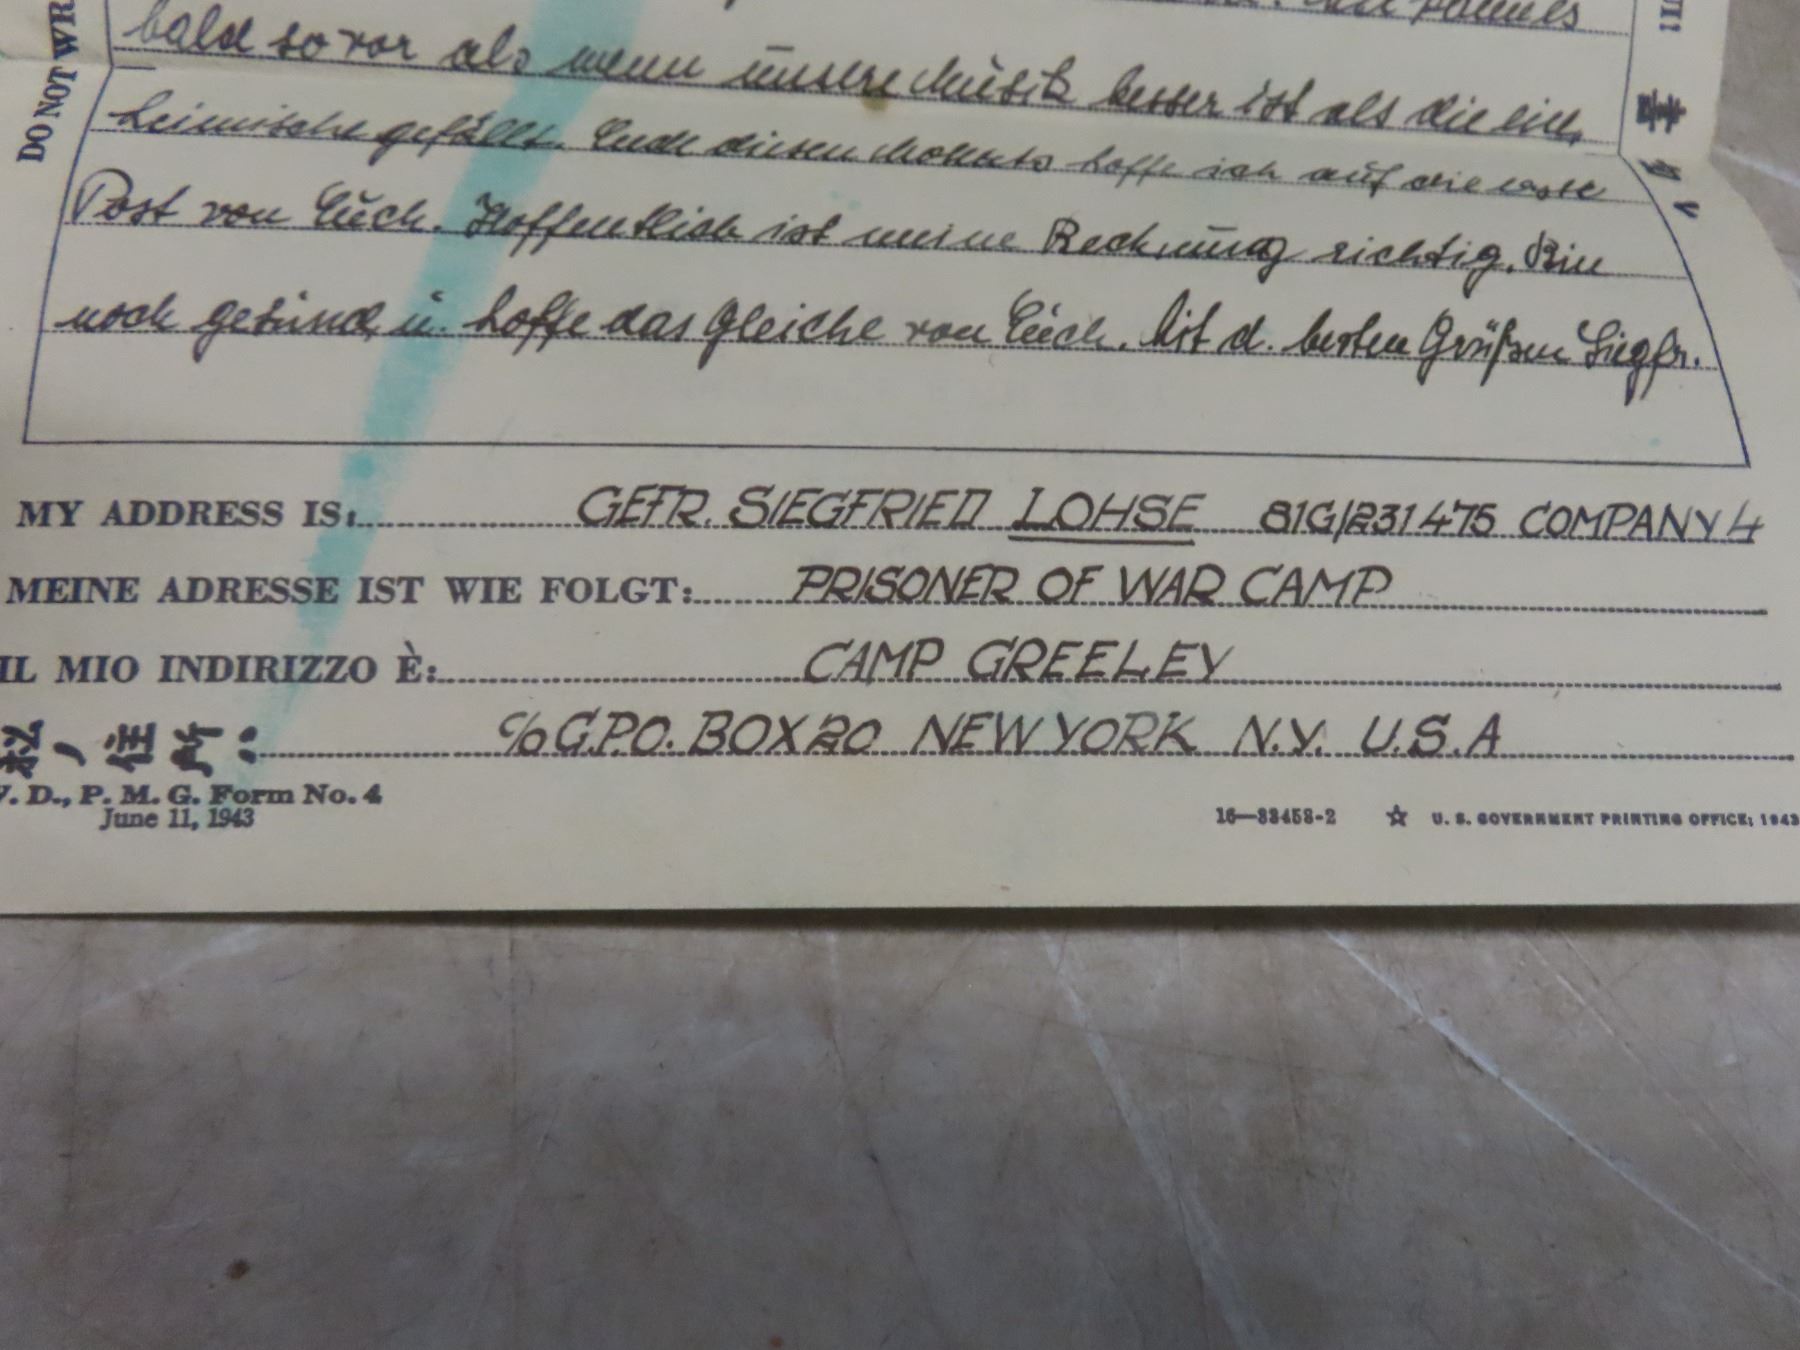 bald so vor als wenn unsere Musik besser ist als die ein,
heimische gefällt. Ende diesen Monats hoffe ich auf die erste
Post von Euch. Hoffentlich ist meine Rechnung richtig. Bin
noch gesund u. hoffe das Gleiche von Euch. Mit d. besten Grüßen Siegfr.
DO NOT WR
MY ADDRESS IS: GEFR. SIEGFRIED LOHSE 81G/231475 COMPANY 4
MEINE ADRESSE IST WIE FOLGT: PRISONER OF WAR CAMP
IL MIO INDIRIZZO È: CAMP GREELEY
私ノ住所: c/o G.P.O. BOX 20 NEW YORK N.Y. U.S.A
W. D., P. M. G. Form No. 4
June 11, 1943
16—33458-2 ☆ U. S. GOVERNMENT PRINTING OFFICE: 1943